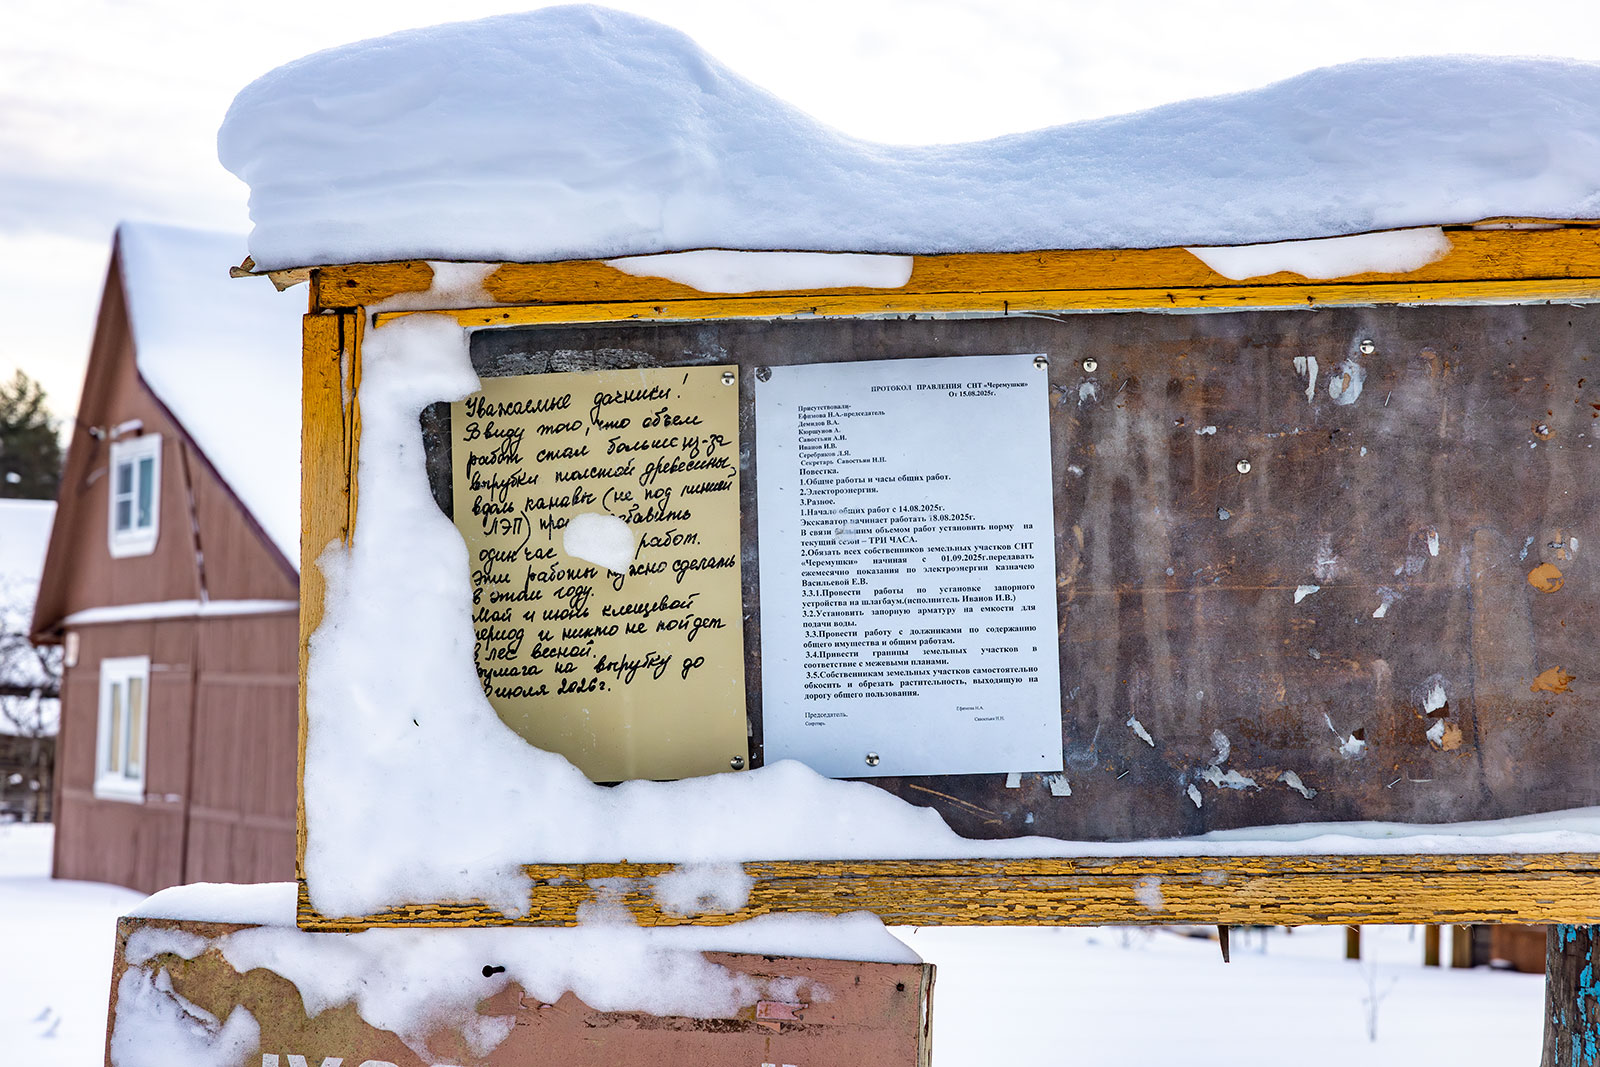 Уважаемые дачники!
Ввиду того, что объем
работ стал больше из-за
вырубки толстой древесины,
вдоль канавы (не под линией
ЛЭП)
один час работ.
Эти работы нужно сделать
в этом году.
Май и июнь клещевой
период и никто не пойдет
в лес весной.
бумага на вырубку до
июля 2026г.
ПРОТОКОЛ ПРАВЛЕНИЯ СНТ «Черемушки»
От 15.08.2025г.
Присутствовали-
Ефимова Н.А.-председатель
Демидов В.А.
Кюршунов А.
Савостьян А.И.
Иванов И.В.
Серебряков Л.Я.
Секретарь Савостьян Н.П.
Повестка.
1.Общие работы и часы общих работ.
2.Электороэнергия.
3.Разное.
1.Начало общих работ с 14.08.2025г.
Экскаватор начинает работать 18.08.2025г.
В связи большим объемом работ установить норму на
текущий сезон – ТРИ ЧАСА.
2.Обязать всех собственников земельных участков СНТ
«Черемушки» начиная с 01.09.2025г.передавать
ежемесячно показания по электроэнергии казначею
Васильевой Е.В.
3.3.1.Провести работы по установке запорного
устройства на шлагбаум.(исполнитель Иванов И.В.)
3.2.Установить запорную арматуру на емкости для
подачи воды.
3.3.Провести работу с должниками по содержанию
общего имущества и общим работам.
3.4.Привести границы земельных участков в
соответствие с межевыми планами.
3.5.Собственникам земельных участков самостоятельно
обкосить и обрезать растительность, выходящую на
дорогу общего пользования.
Председатель. Ефимова Н.А.
Секретарь Савостьян Н.П.